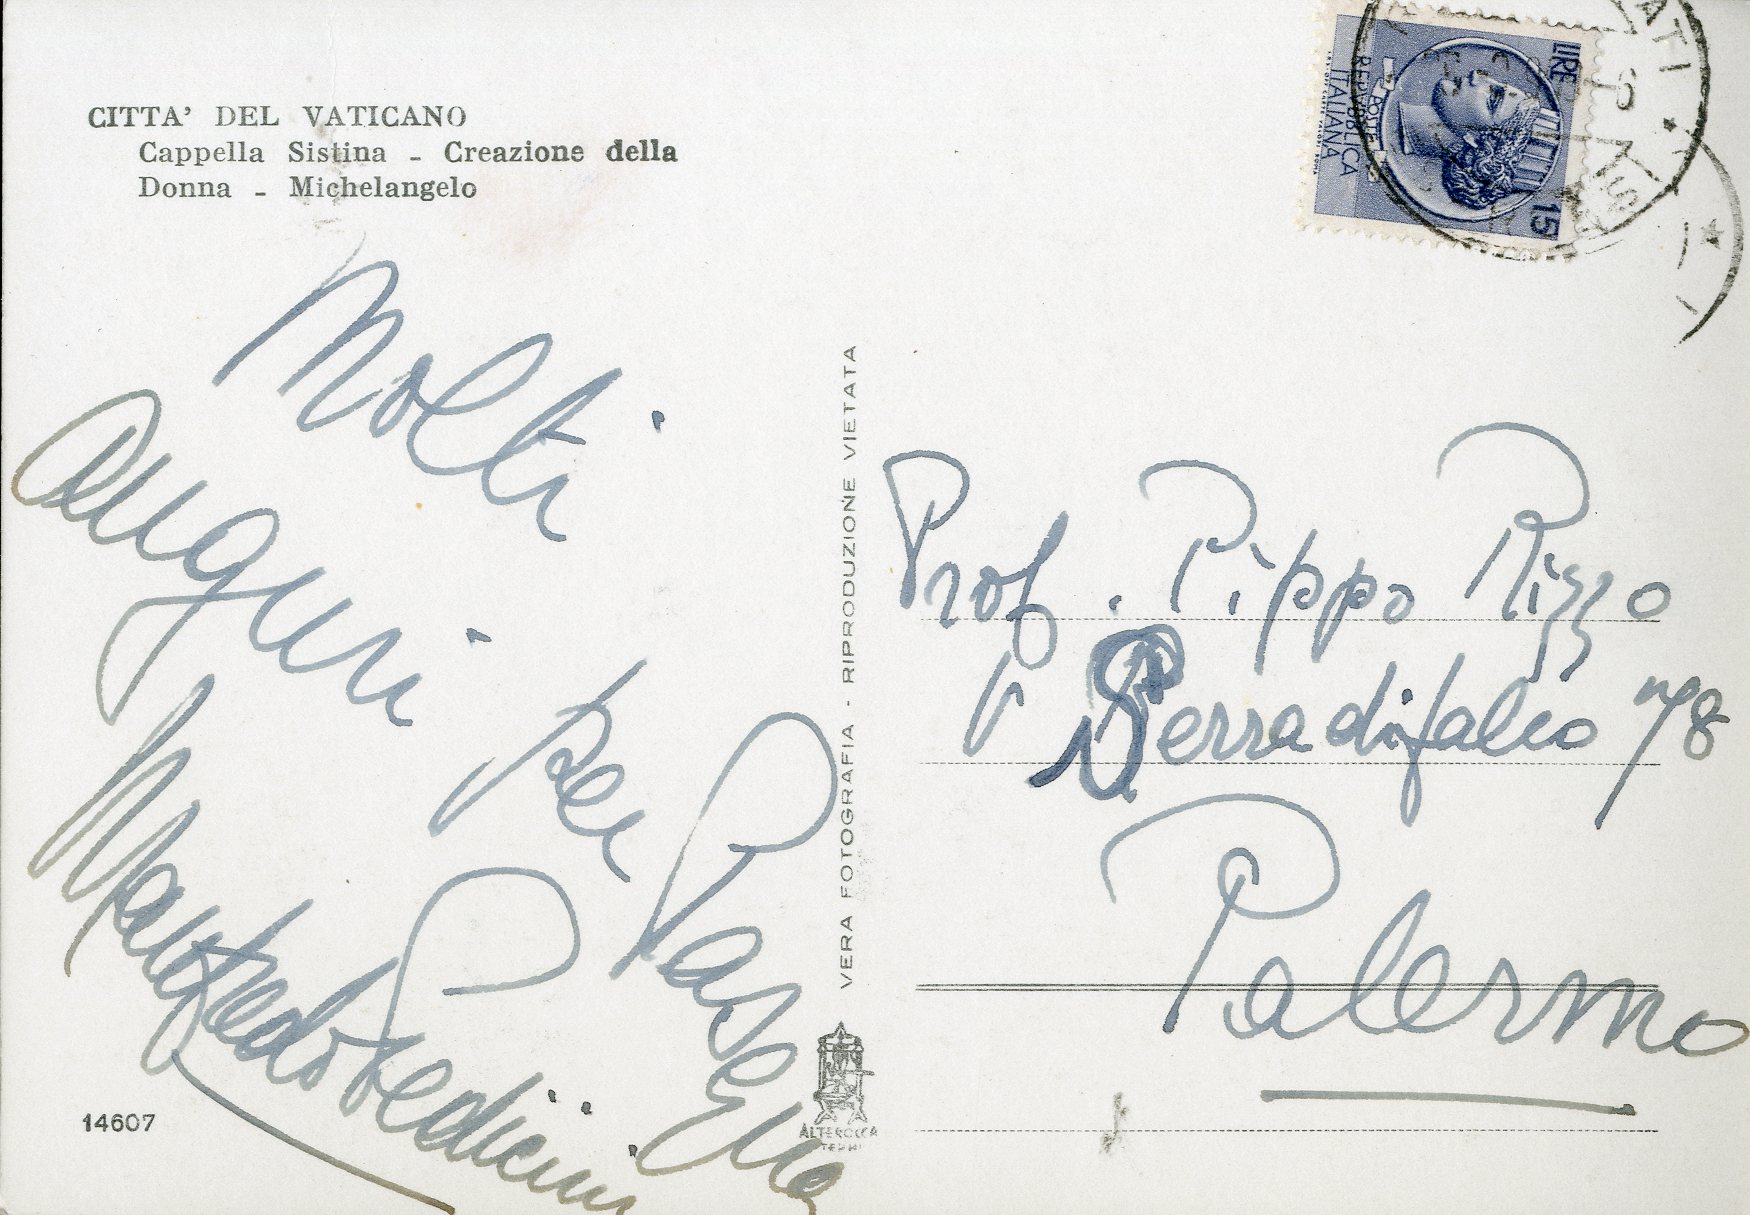 CITTA' DEL VATICANO
Cappella Sistina - Creazione della
Donna - Michelangelo
Molti
auguri per Pasqua
Manfredo Pedicini
14607
VERA FOTOGRAFIA - RIPRODUZIONE VIETATA
ALTEROCCA
TERNI
LIRE 15
POSTE
REPVBBLICA
ITALIANA
ATI
Prof. Pippo Rizzo
V Serradifalco 78
Palermo